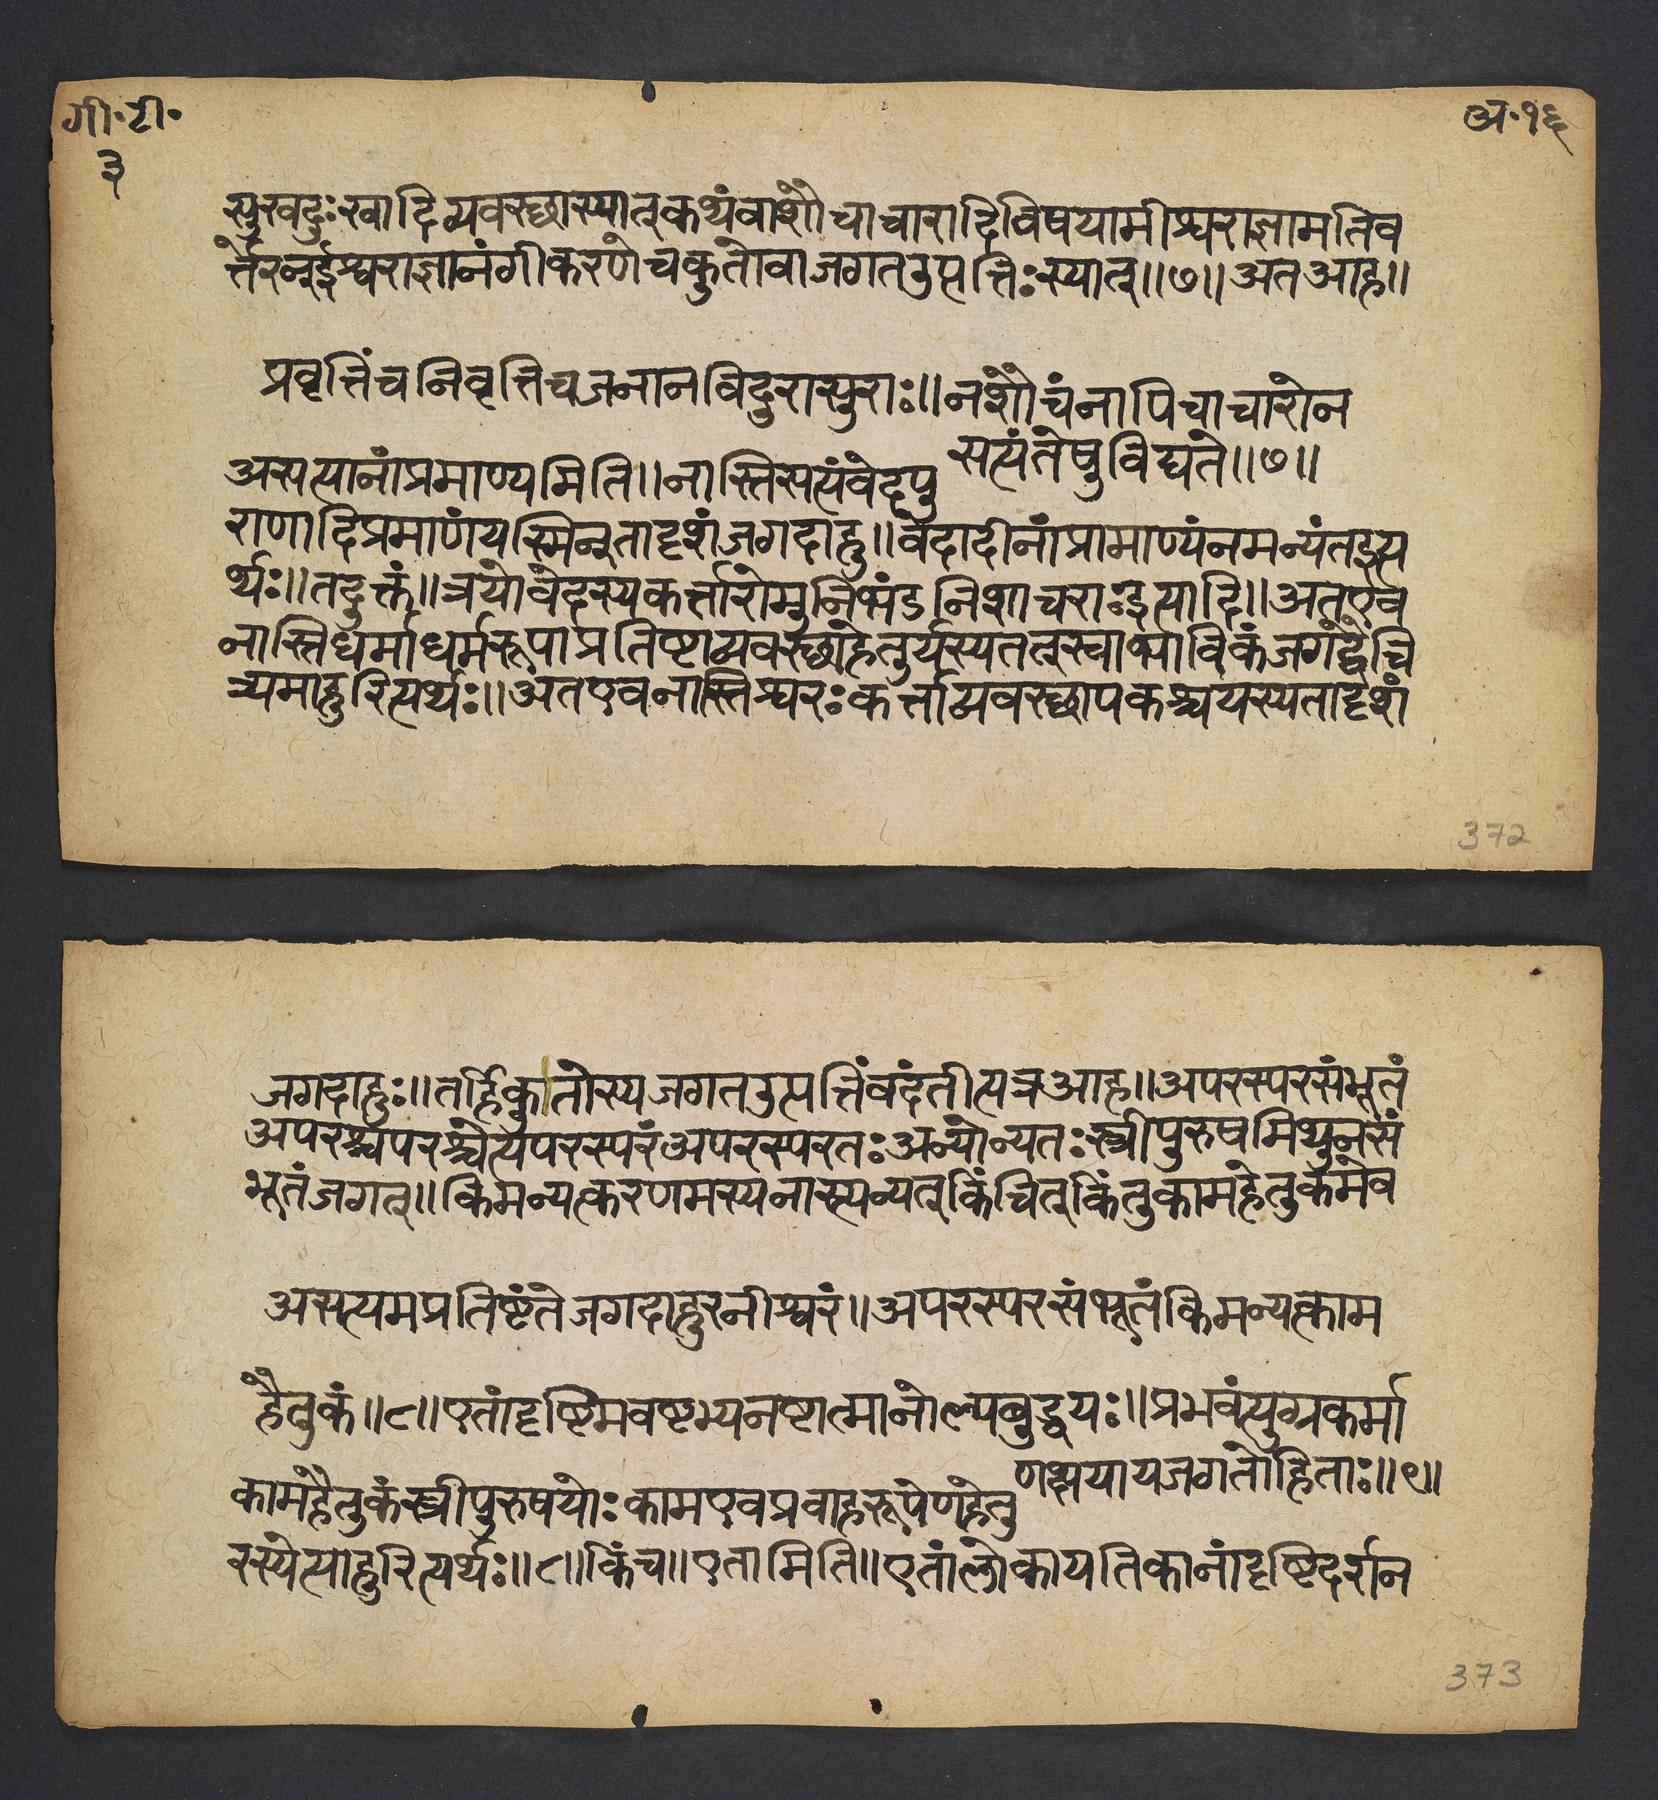 गी॰ टी॰
३
अ॰ १६
सुखदुःखादिव्यवस्छास्यात्कथंवाशौचाचारादिविषयामीश्वराज्ञामतिव
र्त्तेरन्ईश्वराज्ञानंगीकरणेचकुतोवाजगतउत्पत्तिःस्यात्॥७॥अतआह॥
प्रवृत्तिंचनिवृत्तिचजनानविदुरासुराः॥नशौचंनापिचाचारोन
सत्यंतेषुविद्यते॥७॥
असत्यानांप्रमाण्यमिति॥नास्तिसत्यंवेदपु
राणादिप्रमाणंयस्मिन्तादृशंजगदाहु॥वेदादीनांप्रामाण्यंनमन्यंतइत्य
र्थः॥तदुक्तं॥त्रयोवेदस्यकर्त्तारोमुनिभंडनिशाचराःइत्यादि॥अतएव
नास्तिधर्माधर्मरूपाप्रतिष्टाव्यवस्छाहेतुर्यस्यतत्स्वाभाविकंजगद्वैचि
त्र्यमाहुरित्यर्थः॥अतएवनास्तिश्वरःकर्त्ताव्यवस्छापकश्चयस्यतादृशं
372
जगदाहुः॥तर्हिकुतोस्यजगतउत्पत्तिंवदंतीत्यत्रआह॥अपरस्परसंभूतं
अपरश्चपरश्चेत्यपरस्परंअपरस्परतःअन्योन्यतःस्त्रीपुरुषमिथुनसं
भूतंजगत्॥किमन्यत्करणमस्यनास्त्यन्यत्किंचित्किंतुकामहेतुकमेव
असत्यमप्रतिष्टंतेजगदाहुरनीश्वरं॥अपरस्परसंभूतंकिमन्यत्काम
हैतुकं॥८॥एतांदृष्टिमवष्टभ्यनष्टात्मानोल्पबुद्धयः॥प्रभवंत्युग्रकर्मा
णक्षयायजगतोहिताः॥९॥
कामहैतुकंस्त्रीपुरुषयोःकामएवप्रवाहरूपेणहेतु
रस्येत्याहुरित्यर्थः॥८॥किंच॥एतामिति॥एतांलोकायतिकानांदृष्टिदर्शन
373